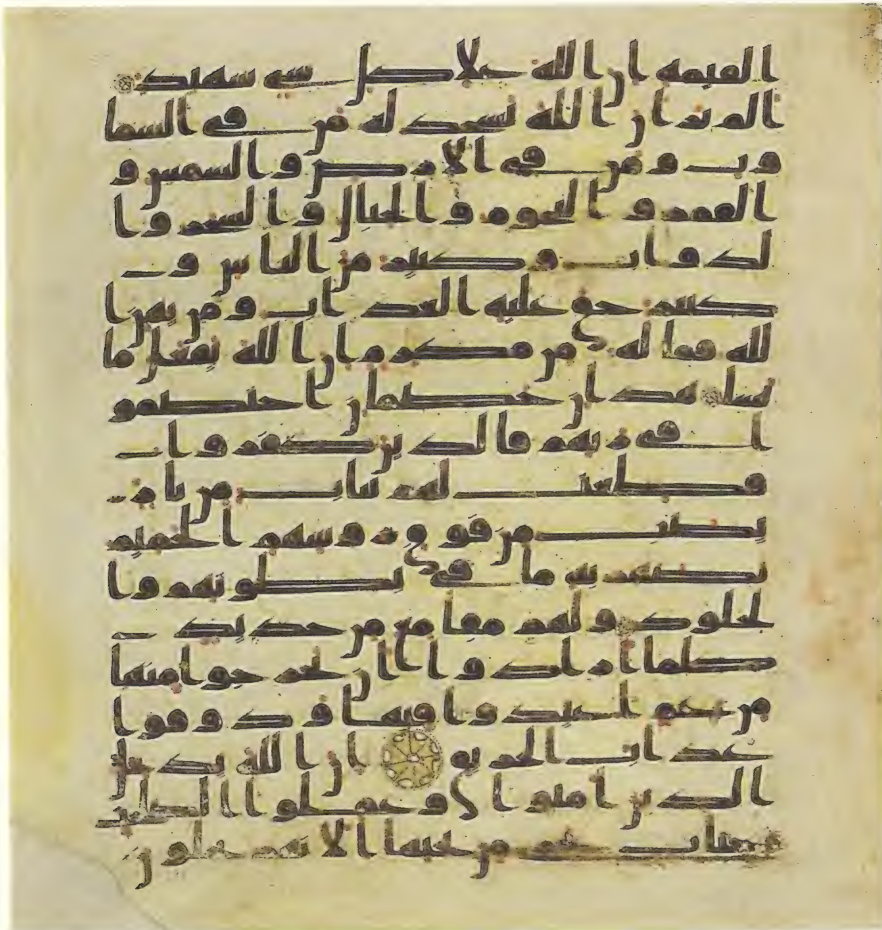 القيمه ان الله على كل شى شهيد
الم تر ان الله يسجد له من فى السما
وت و من فى الارض و الشمس و
القمر و النجوم و الجبال و الشجر و ا
لدواب و كثير من الناس و
كثير حق عليه العذاب و من يهن ا
لله فما له من مكرم ان الله يفعل ما
يشا هذان خصمان اختصمو
ا فى ربهم فالذين كفروا
قطعت لهم ثياب من نار
يصب من فوق روسهم الحميم
يصهر به ما فى بطونهم و ا
لجلود و لهم مقامع من حديد
كلما ارادوا ان يخرجوا منها
من غم اعيدوا فيها و ذوقوا
عذاب الحريق ان الله يدخل
الذين امنوا و عملوا الصلحت
جنات تجرى من تحتها الانهر يحلون